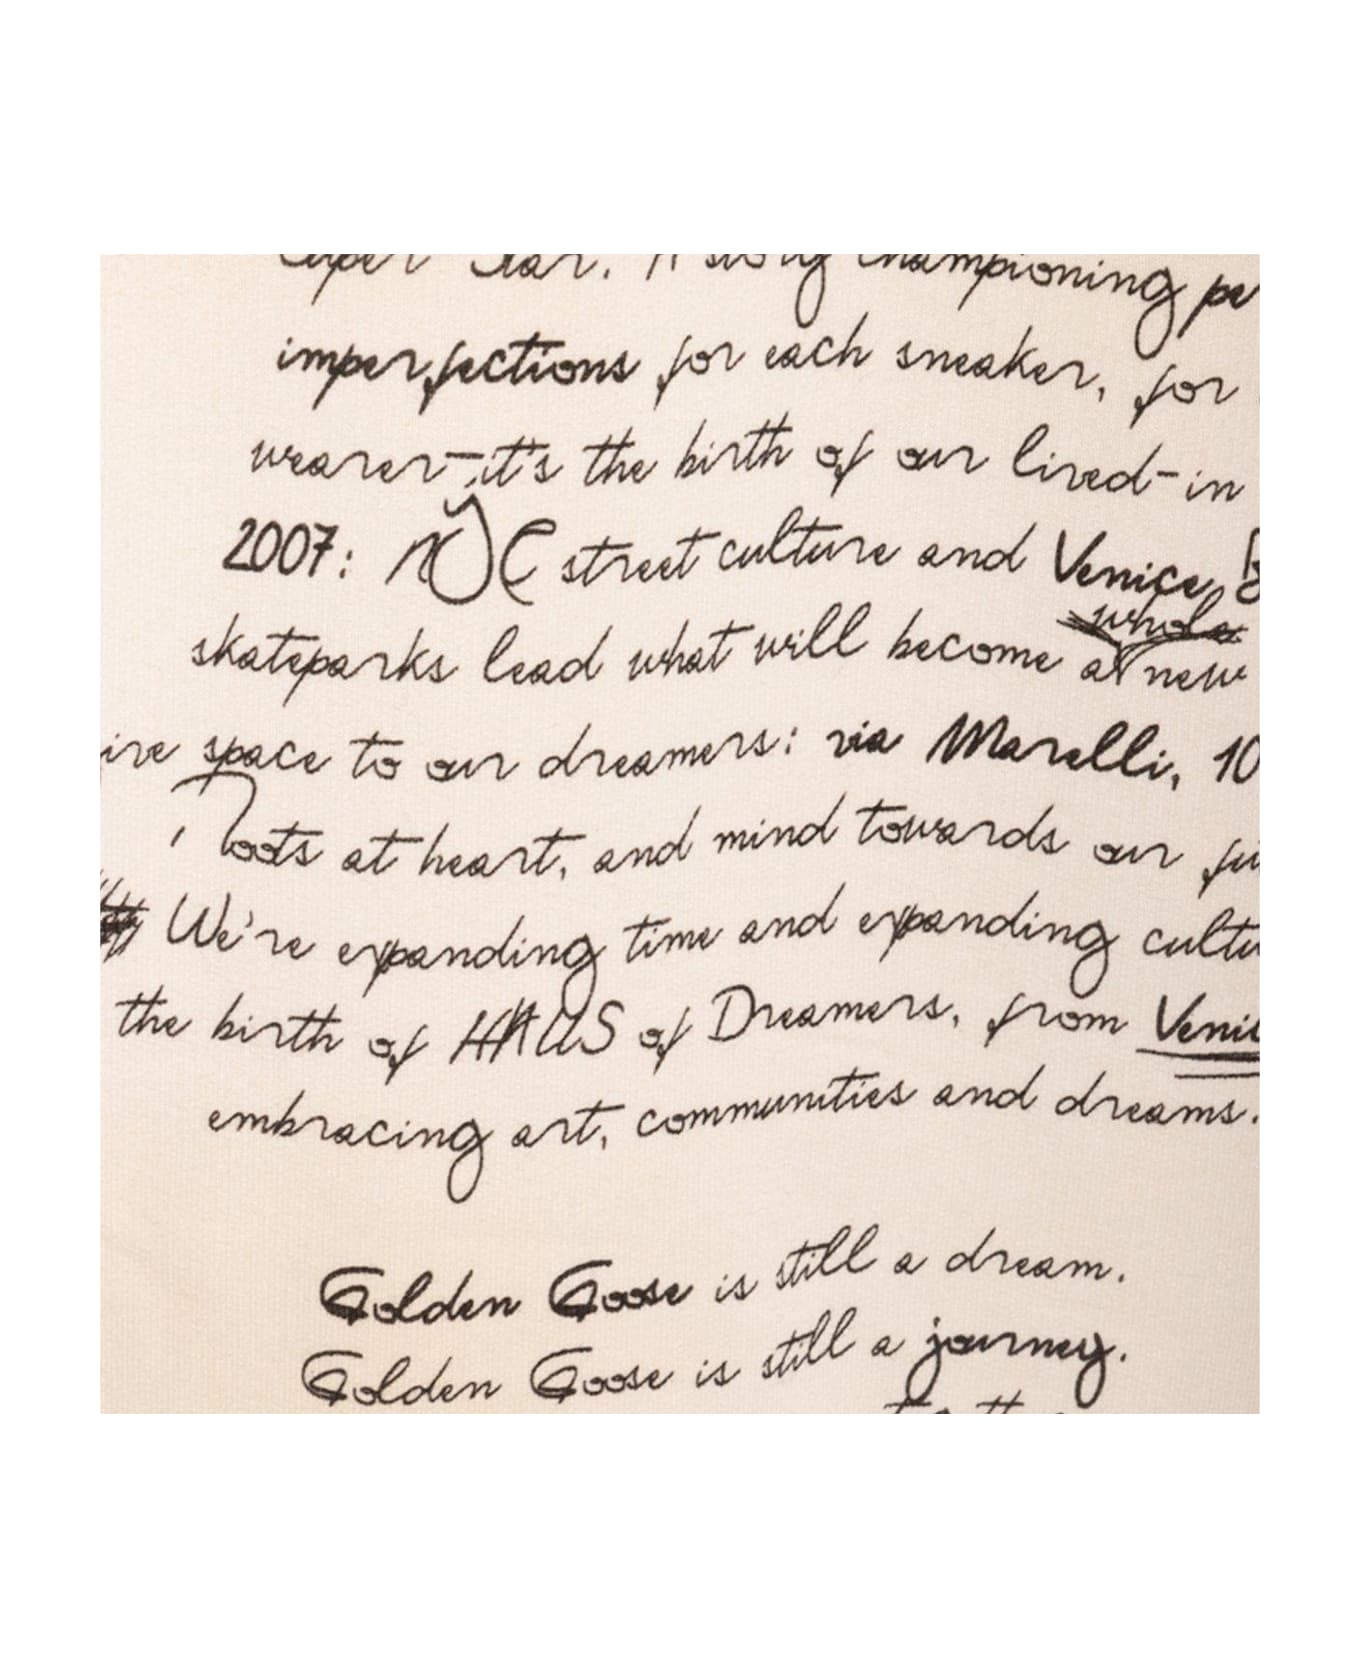 Super Star. A story championing pe
imperfections for each sneaker, for
wearer—it's the birth of our lived-in
2007: NYC street culture and Venice B
skateparks lead what will become a whole new
ive space to our dreamers: via Marelli, 10
Roots at heart, and mind towards our fu
We're expanding time and expanding cultu
the birth of HAUS of Dreamers, from Veni
embracing art, communities and dreams.
Golden Goose is still a dream.
Golden Goose is still a journey.